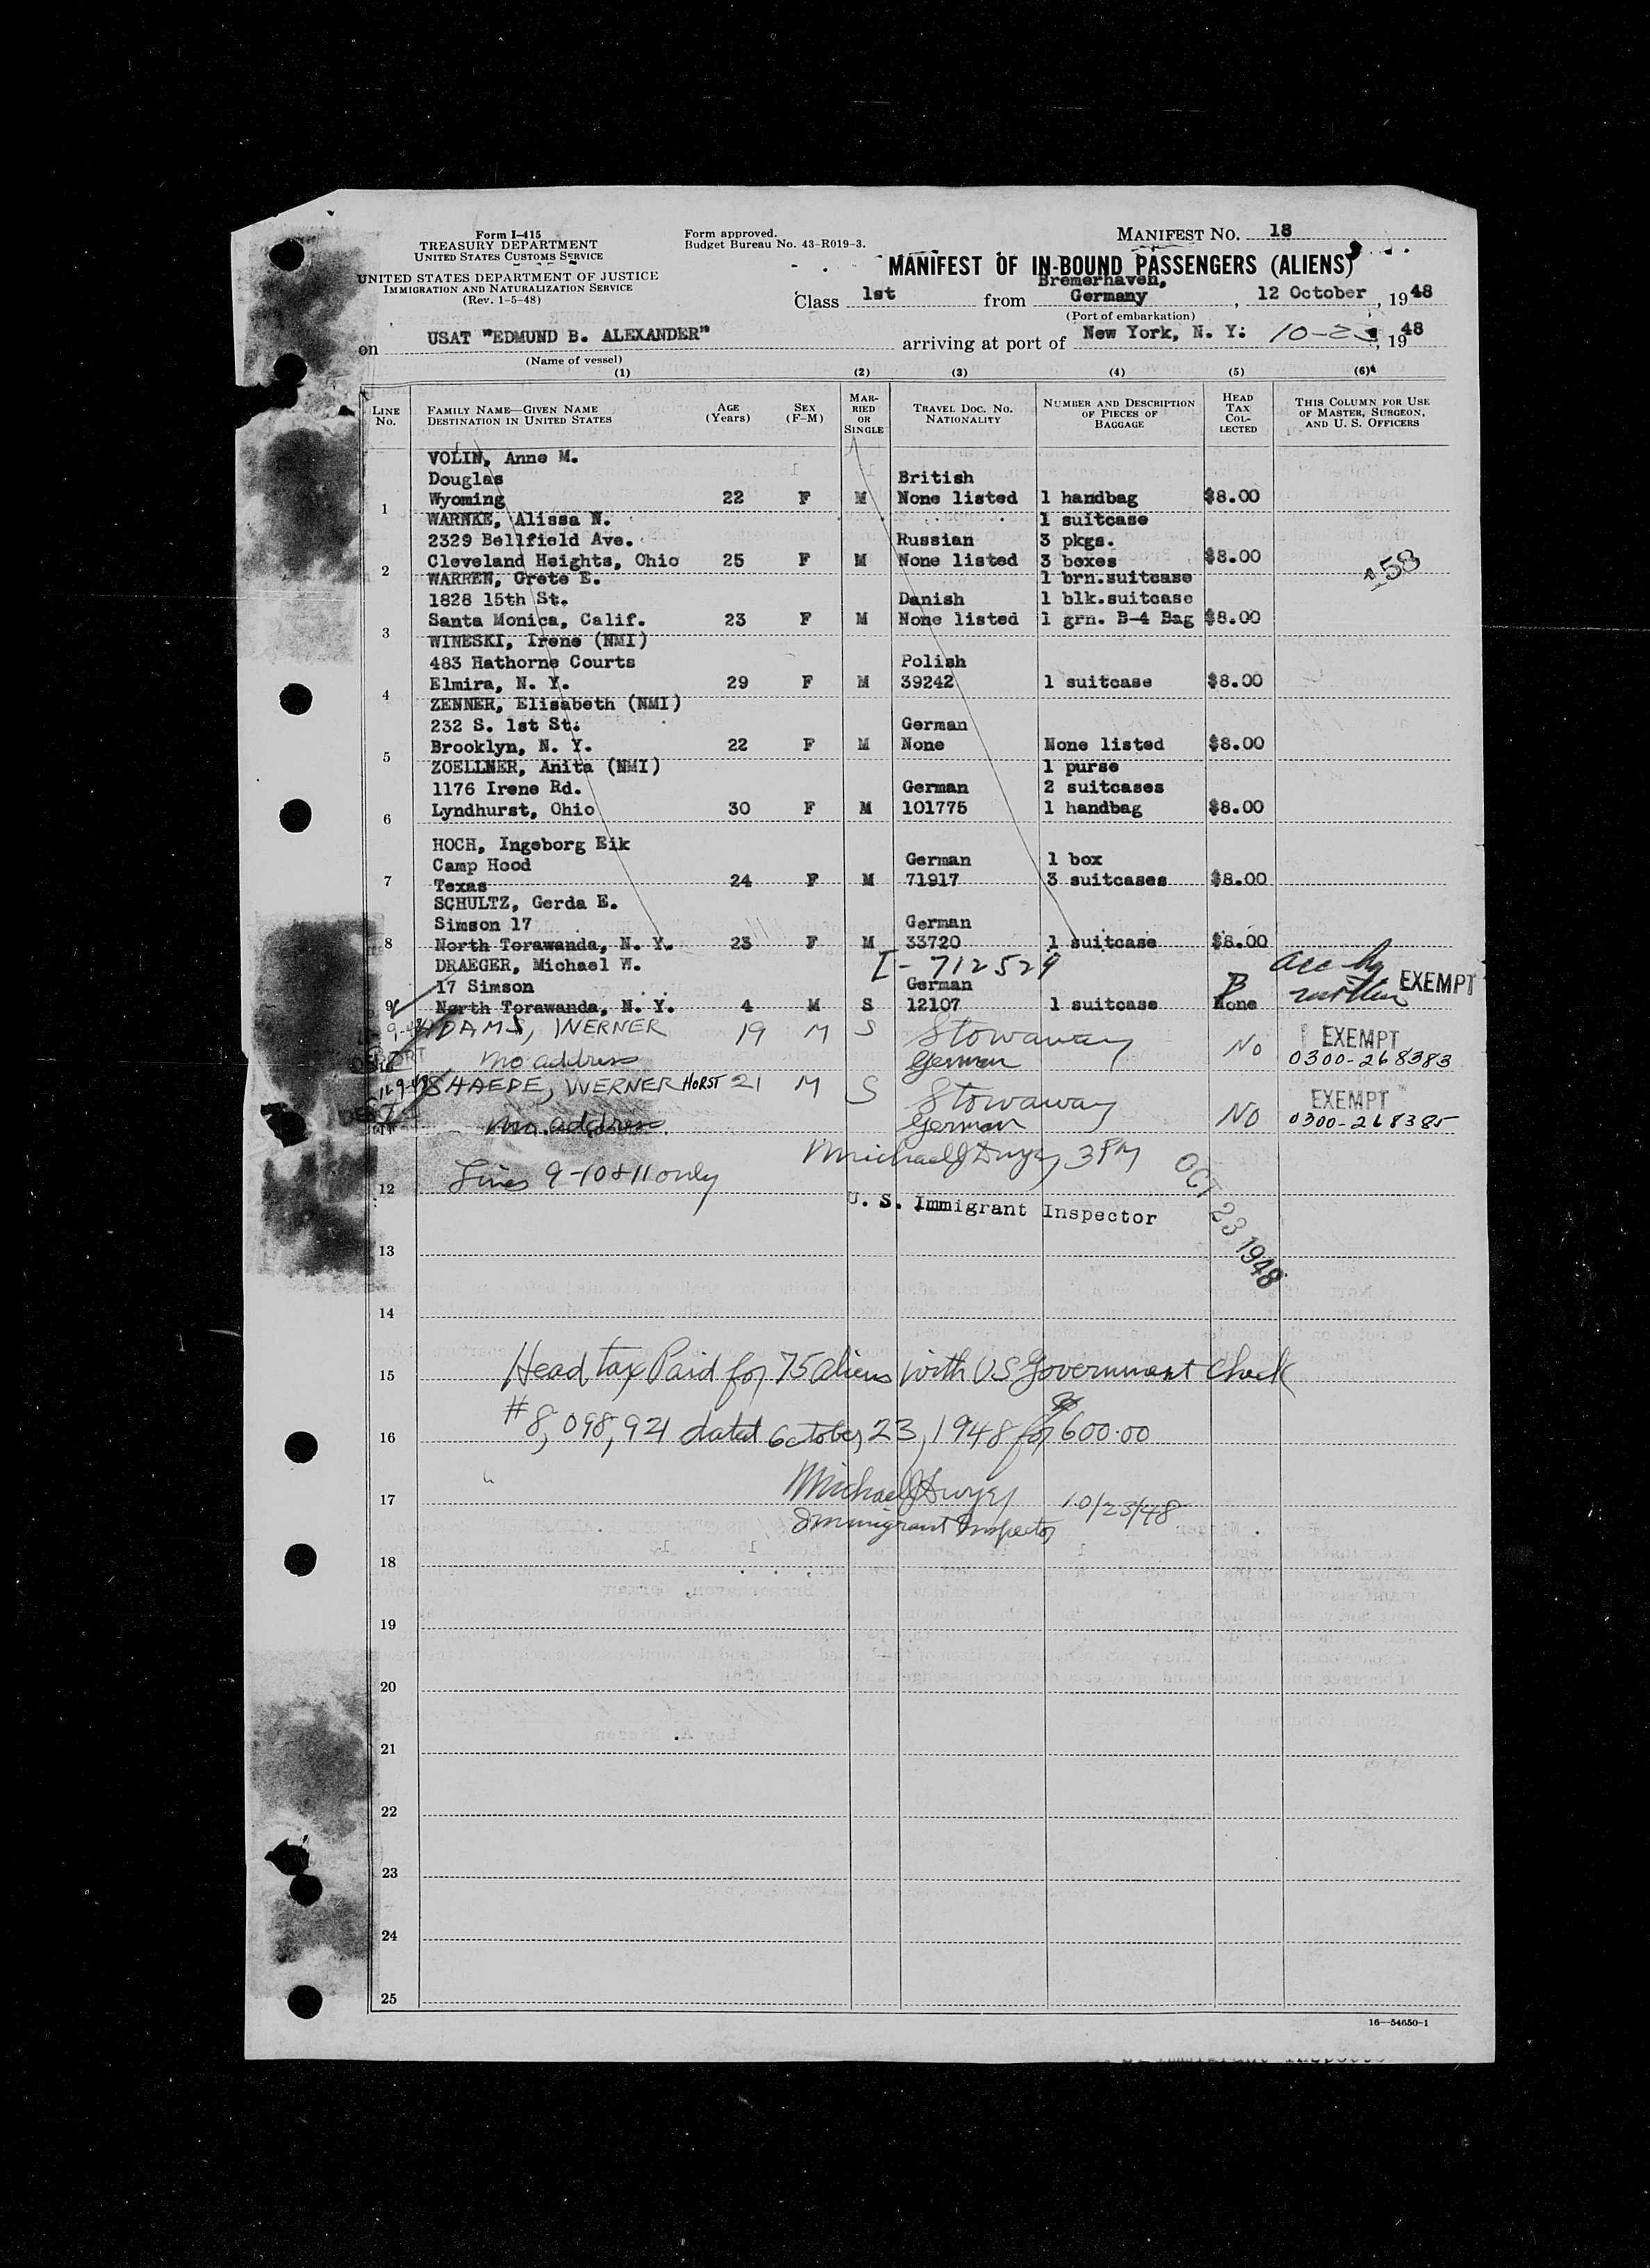 Form I-415
TREASURY DEPARTMENT
UNITED STATES CUSTOMS SERVICE
UNITED STATES DEPARTMENT OF JUSTICE
IMMIGRATION AND NATURALIZATION SERVICE
(Rev. 1-5-48)
Form approved.
Budget Bureau No. 43-R019-3.
MANIFEST NO. 18
MANIFEST OF IN-BOUND PASSENGERS (ALIENS)
Class 1st from Bremerhaven, Germany, 12 October, 1948
(Port of embarkation)
on USAT "EDMUND B. ALEXANDER" arriving at port of New York, N. Y: 10-23, 1948
(Name of vessel)
(1) (2) (3) (4) (5) (6)
LINE No. FAMILY NAME—GIVEN NAME DESTINATION IN UNITED STATES AGE (Years) SEX (F-M) MARRIED OR SINGLE TRAVEL DOC. NO. NATIONALITY NUMBER AND DESCRIPTION OF PIECES OF BAGGAGE HEAD TAX COLLECTED THIS COLUMN FOR USE OF MASTER, SURGEON, AND U. S. OFFICERS
VOLIN, Anne M.
Douglas British
1 Wyoming 22 F M None listed 1 handbag $8.00
WARNKE, Alissa N. 1 suitcase
2329 Bellfield Ave. Russian 3 pkgs.
2 Cleveland Heights, Ohio 25 F M None listed 3 boxes $8.00
158
WARREN, Grete E. 1 brn.suitcase
1828 15th St. Danish 1 blk.suitcase
3 Santa Monica, Calif. 23 F M None listed 1 grn. B-4 Bag $8.00
WINESKI, Irene (NMI)
483 Hathorne Courts Polish
4 Elmira, N. Y. 29 F M 39242 1 suitcase $8.00
ZENNER, Elisabeth (NMI)
232 S. 1st St. German
5 Brooklyn, N. Y. 22 F M None None listed $8.00
ZOELLNER, Anita (NMI) 1 purse
1176 Irene Rd. German 2 suitcases
6 Lyndhurst, Ohio 30 F M 101775 1 handbag $8.00
HOCH, Ingeborg Eik
Camp Hood German 1 box
7 Texas 24 F M 71917 3 suitcases $8.00
SCHULTZ, Gerda E.
Simson 17 German
8 North Torawanda, N. Y. 23 F M 33720 1 suitcase $8.00
DRAEGER, Michael W. I-712529
17 Simson German EXEMPT
9 North Torawanda, N. Y. 4 M S 12107 1 suitcase None
ADAMS, WERNER 19 M S Stowaway No EXEMPT
10 no address German 0300-268383
SHAEDE, WERNER HORST 21 M S Stowaway NO EXEMPT
11 no address German 0300-268385
Lines 9-10 & 11 only Michael J Dwyer 3 PM
12
U. S. Immigrant Inspector
OCT 23 1948
13
14
15 Head tax Paid for 75 aliens with US Government Check
16 # 8,098,921 dated October 23, 1948 for $600.00
17 Michael J Dwyer 10/23/48
Immigrant Inspector
18
19
20
21
22
23
24
25
16—54650-1